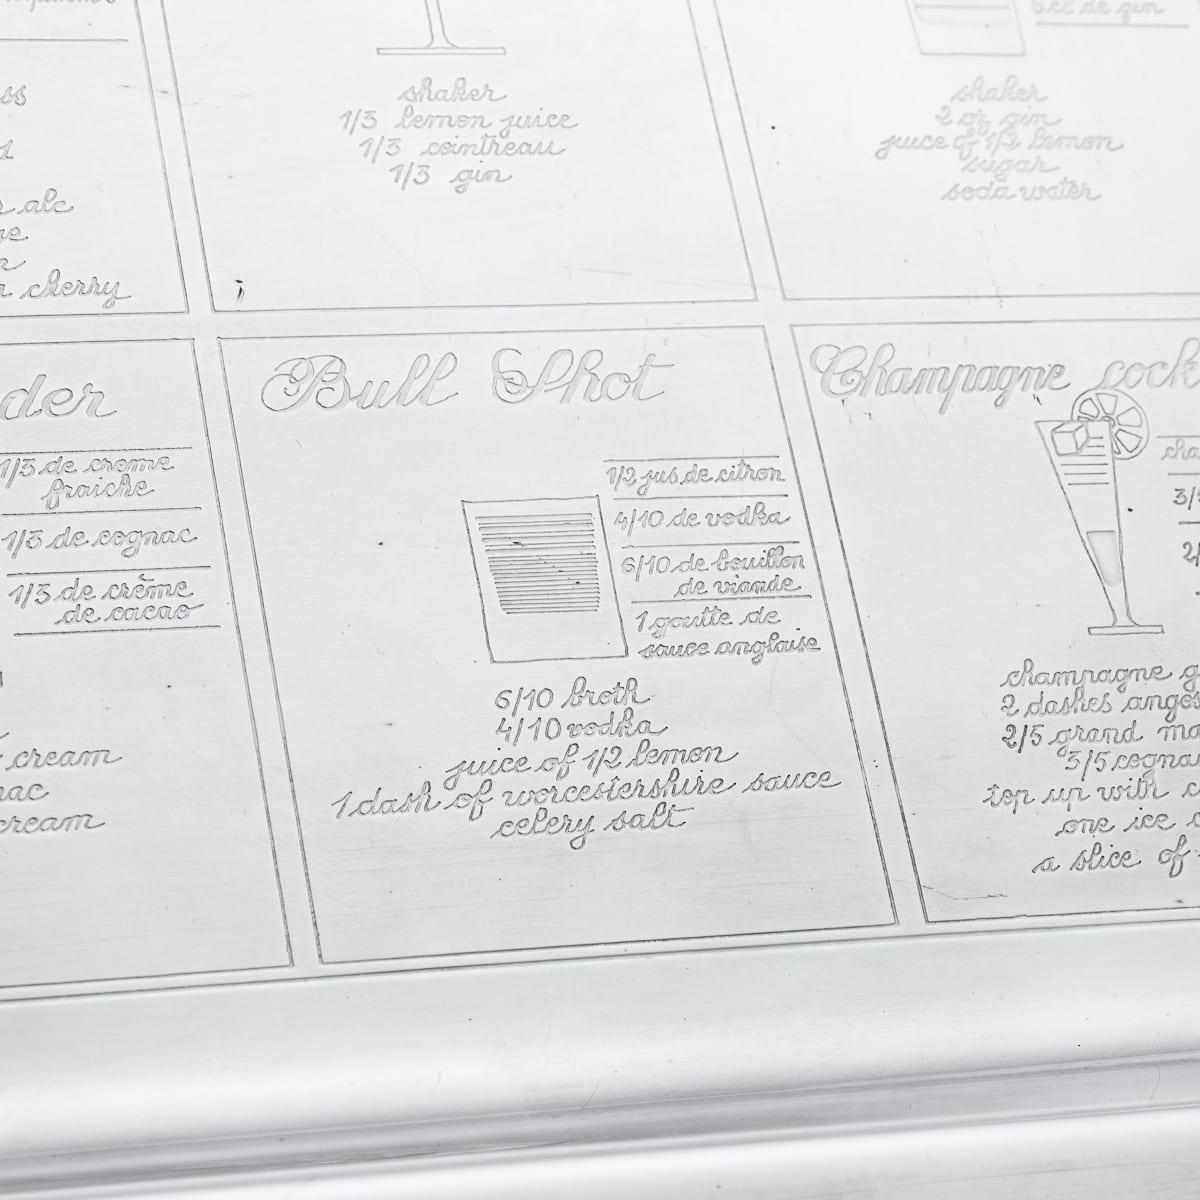 ss
1
alc
cherry
shaker
1/3 lemon juice
1/3 cointreau
1/3 gin
6 cl de gin
shaker
2 oz gin
juice of 1/2 lemon
sugar
soda water
der
1/3 de creme
fraiche
1/3 de cognac
1/3 de crème
de cacao
cream
nac
cream
Bull Shot
1/2 jus de citron
4/10 de vodka
6/10 de bouillon
de viande
1 goutte de
sauce anglaise
6/10 broth
4/10 vodka
juice of 1/2 lemon
1 dash of worcestershire sauce
celery salt
Champagne cock
cha
3/
2/
champagne g
2 dashes angos
2/5 grand ma
3/5 cogna
top up with c
one ice c
a slice of